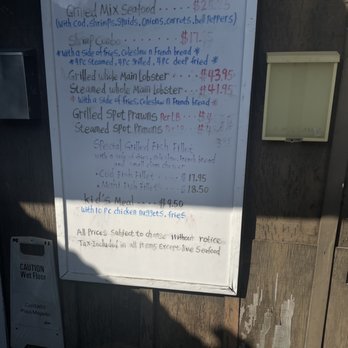 Grilled Mix Seafood
(with Cod, shrimps, squids, Onions, carrots, bell peppers)
Shrimp Combo
*with a side of fries, Coleslaw n French bread *
*4pc steamed, 4pc grilled, 4pc deef fried *
Grilled whole Main Lobster $43.95
Steamed whole Main Lobster $41.95
* with a side of fries, Coleslaw n French bread *
Grilled Spot Prawns Per LB
Steamed Spot Prawns
Special Grilled Fish Fillet
French bread
and small clam chowder
Cod Fish Fillet $17.95
Fish Fillet $18.50
kid's Meal $9.50
with 10 PC chicken nuggets, fries
All Prices subject to change without notice
Tax Included in all items Except live Seafood
CAUTION
Wet Floor